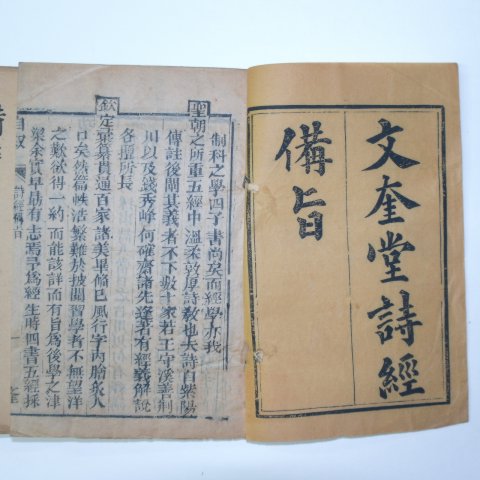 文奎堂詩經
備旨
制科之學四子書尚矣而經學亦我
聖朝之所重五經中溫柔敦厚詩教也夫詩自紫陽
傳註後闡其義者不下數十家若王守溪荆
川以及錢秀峰何確齋諸先逹著有經義解說
各擅所長
欽定彙纂貫通百家諸美畢備已風行字內膾炙人
口矣然篇帙浩繁難於披閱習學者不無望洋
之歎欲得一約而能該詳而有旨爲後學之津
梁余實早勗有志焉予爲經生時四書五經採
自敘
詩經備旨